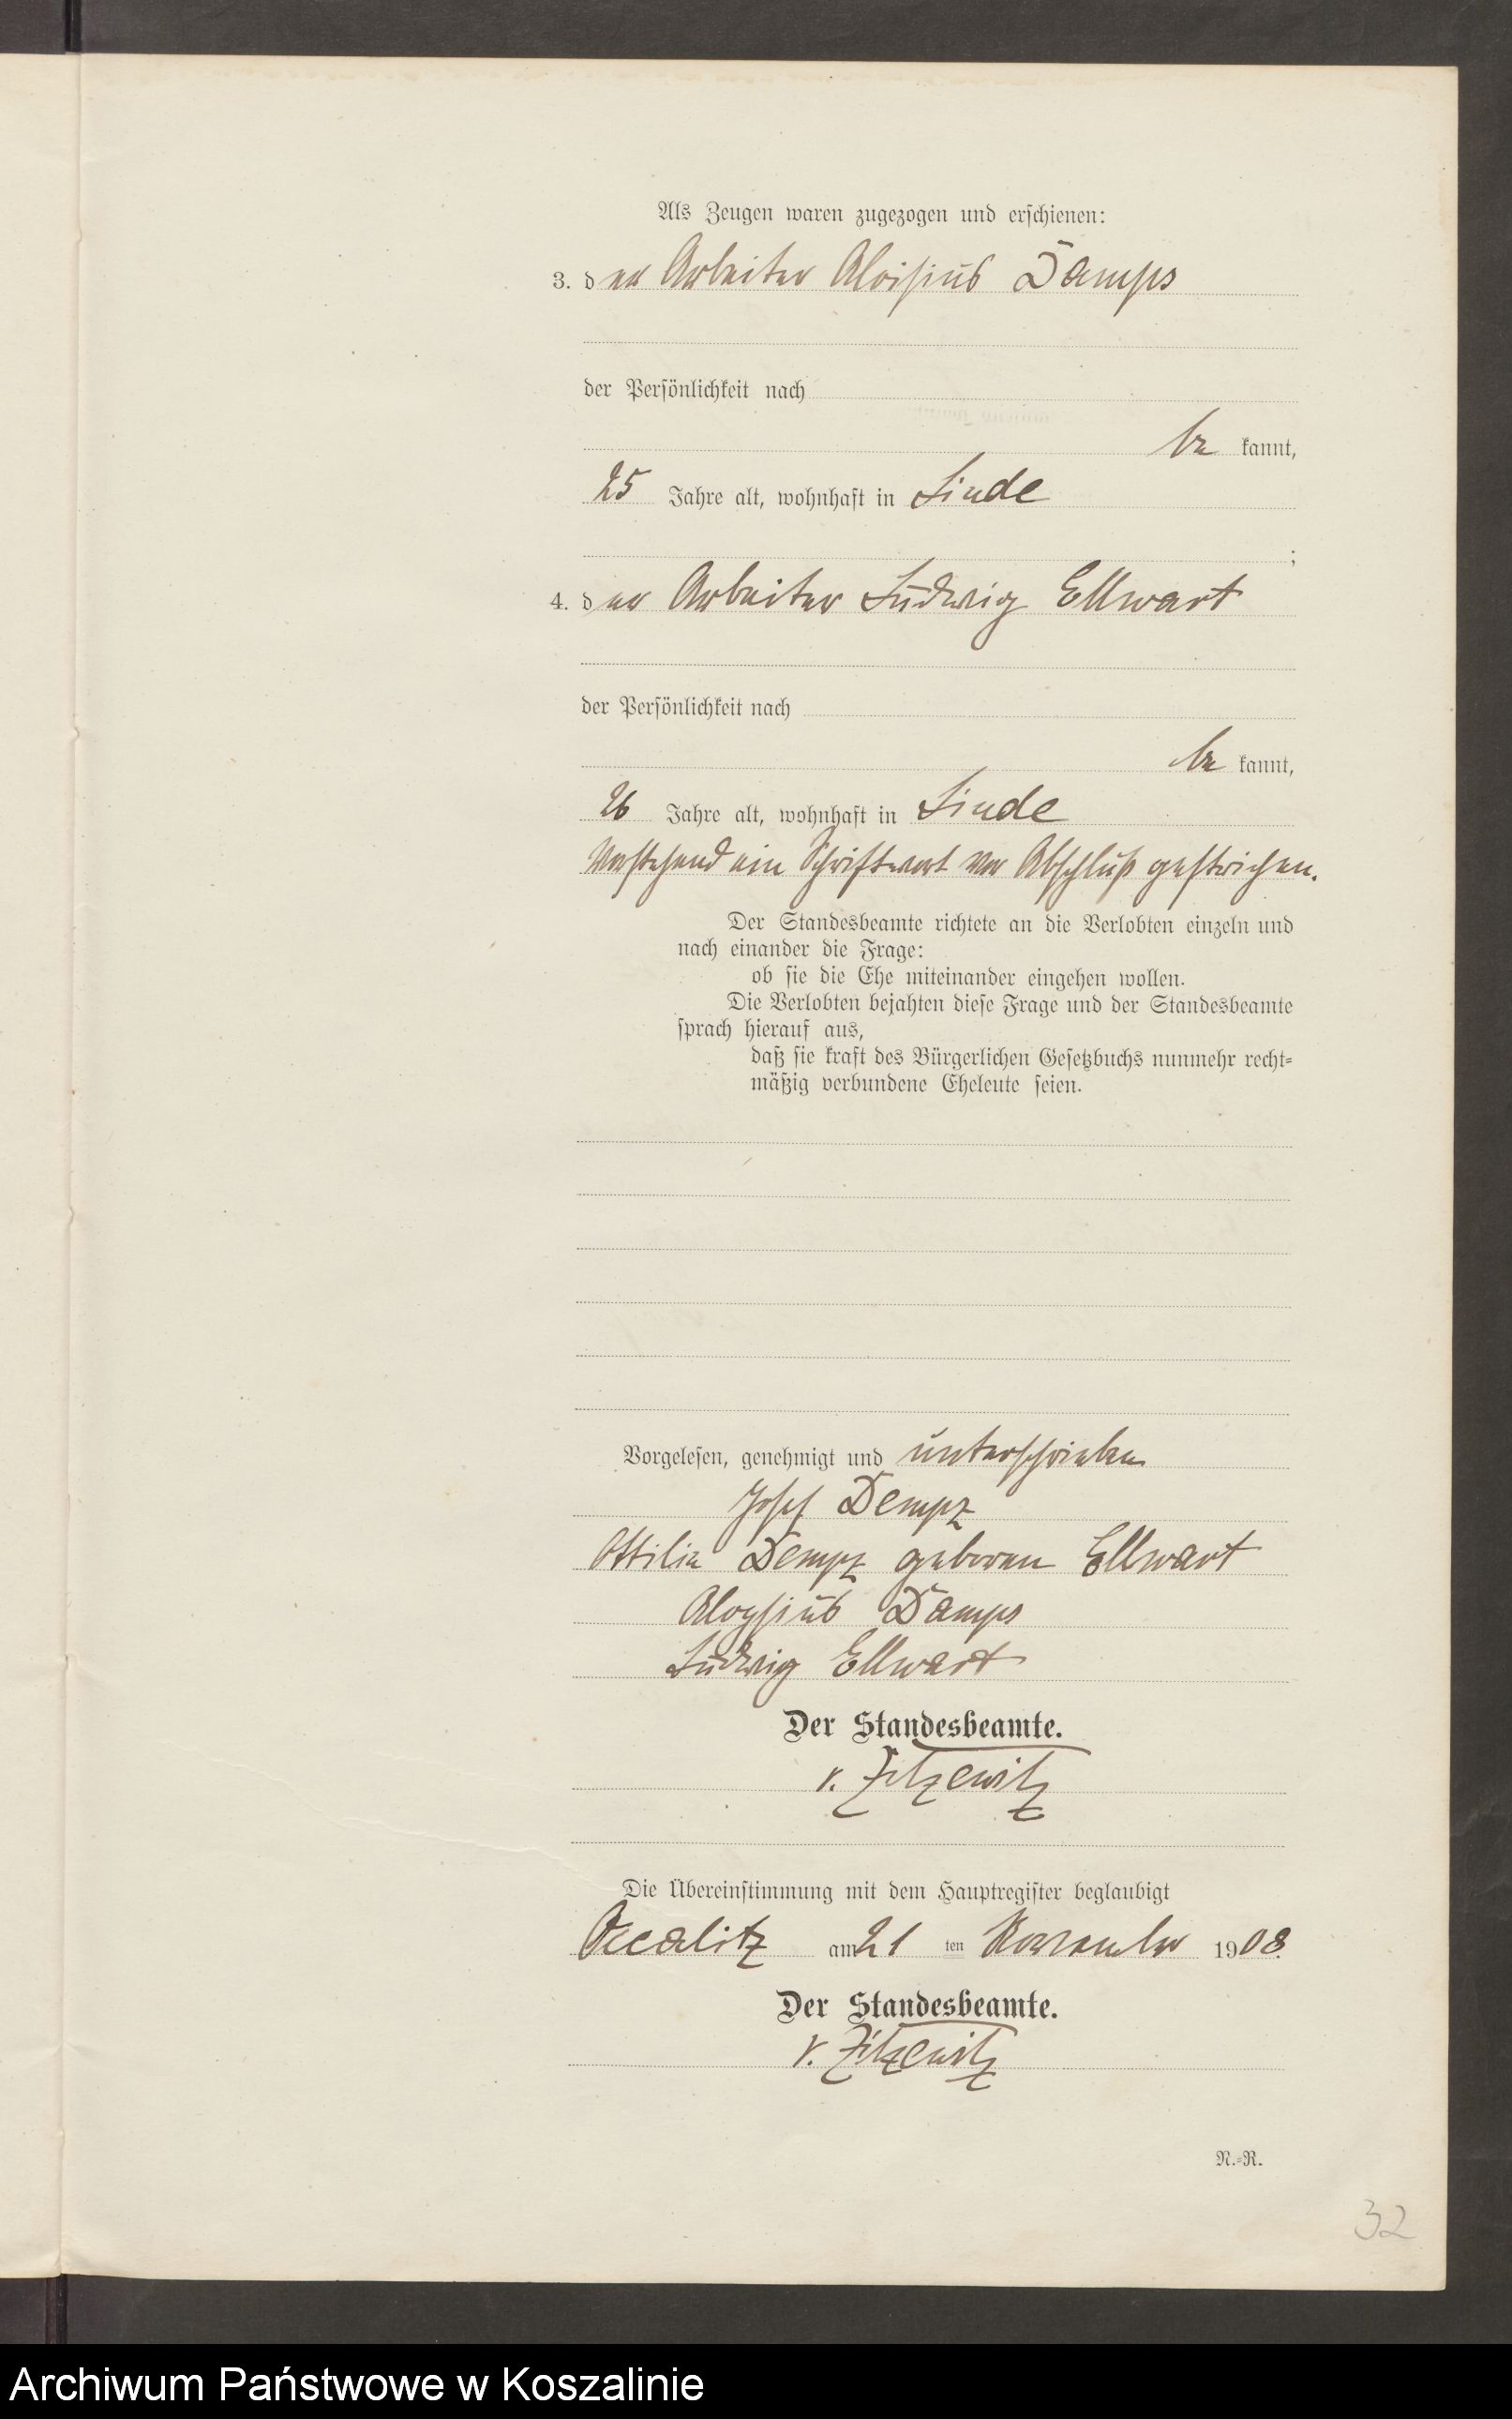 Als Zeugen waren zugezogen und erschienen:
3. der Arbeiter Aloisius Damps
der Persönlichkeit nach
be kannt,
25 Jahre alt, wohnhaft in Linde
;
4. der Arbeiter Ludwig Ellwart
der Persönlichkeit nach
be kannt,
26 Jahre alt, wohnhaft in Linde
Vorstehend ein Schriftwort vor Abschluß gestrichen.
Der Standesbeamte richtete an die Verlobten einzeln und
nach einander die Frage:
ob sie die Ehe miteinander eingehen wollen.
Die Verlobten bejahten diese Frage und der Standesbeamte
sprach hierauf aus,
daß sie kraft des Bürgerlichen Gesetzbuchs nunmehr recht=
mäßig verbundene Eheleute seien.
Vorgelesen, genehmigt und unterschrieben
Josef Dempz
Ottilie Dempz geboren Ellwart
Aloysius Damps
Ludwig Ellwart
Der Standesbeamte.
v. Zitzewitz
Die Übereinstimmung mit dem Hauptregister beglaubigt
Occalitz am 21 ten November 1908.
Der Standesbeamte.
v. Zitzewitz
N.=R.
32
Archiwum Państwowe w Koszalinie